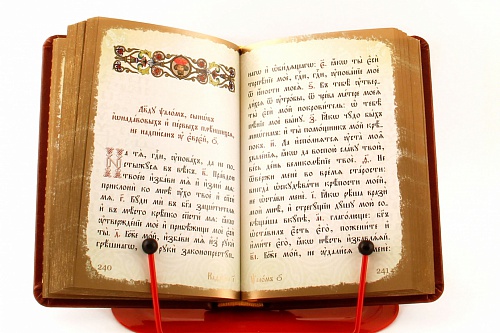 Дв҃дꙋ ѱало́мъ, сынѡ́въ
і҆ѡнада́вовыхъ и҆ пе́рвыхъ плѣ́ншихсѧ,
не надпи́санъ ᲂу҆ є҆вре́й, о҃.
На тѧ̀, гдⷭ҇и, ᲂу҆пова́хъ, да не по-
стыжꙋ́сѧ въ вѣ́къ. в҃. Пра́вдою
твое́ю и҆зба́ви мѧ̀ и҆ и҆зми́ мѧ:
приклонѝ ко мнѣ̀ ᲂу҆́хо твоѐ и҆
спаси́ мѧ. г҃. Бꙋ́ди мѝ въ бг҃а защи́тителѧ
и҆ въ мѣ́сто крѣ́пко спасти́ мѧ: ꙗ҆́кѡ
ᲂу҆твержде́нїе моѐ и҆ прибѣ́жище моѐ є҆сѝ
ты̀. д҃. Бж҃е мо́й, и҆зба́ви мѧ̀ и҆з̾ рꙋкѝ
грѣ́шнагѡ, и҆з̾ рꙋкѝ законопрестꙋ́п-
240
нагѡ и҆ ѡ҆би́дѧщагѡ: є҃. ꙗ҆́кѡ ты̀ є҆сѝ
терпѣ́нїе моѐ, гдⷭ҇и, гдⷭ҇и, ᲂу҆пова́нїе моѐ
ѿ ю҆́ности моеѧ̀. ѕ҃. Въ тебѣ̀ ᲂу҆тверди́-
хсѧ ѿ ᲂу҆тро́бы, ѿ чре́ва ма́тере моеѧ̀
ты̀ є҆сѝ мо́й покрови́тель: ѡ҆ тебѣ̀
пѣ́нїе моѐ вы́нꙋ. з҃. Ꙗ҆́кѡ чꙋ́до бы́хъ
мнѡ́гимъ: и҆ ты̀ помо́щникъ мо́й крѣ́-
покъ. и҃. Да и҆спо́лнѧтсѧ ᲂу҆ста̀ моѧ̀
хвале́нїѧ, ꙗ҆́кѡ да воспою̀ сла́вꙋ твою̀,
ве́сь де́нь великолѣ́пїе твоѐ. ѳ҃. Не
ѿве́ржи менѐ во вре́мѧ ста́рости:
внегда̀ ѡ҆скꙋдѣва́ти крѣ́пости мое́й,
не ѡ҆ста́ви менѐ. і҃. Ꙗ҆́кѡ рѣ́ша вразѝ
моѝ мнѣ̀, и҆ стрегꙋ́щїи дꙋ́шꙋ мою̀ со-
вѣща́ша вкꙋ́пѣ, а҃і. глаго́люще: бг҃ъ
ѡ҆ста́вилъ є҆́сть є҆го̀, пожени́те и҆
и҆ми́те є҆го̀, ꙗ҆́кѡ нѣ́сть и҆збавлѧ́ѧй.
в҃і. Бж҃е мо́й, не ᲂу҆дали́сѧ ѿ менѐ:
241